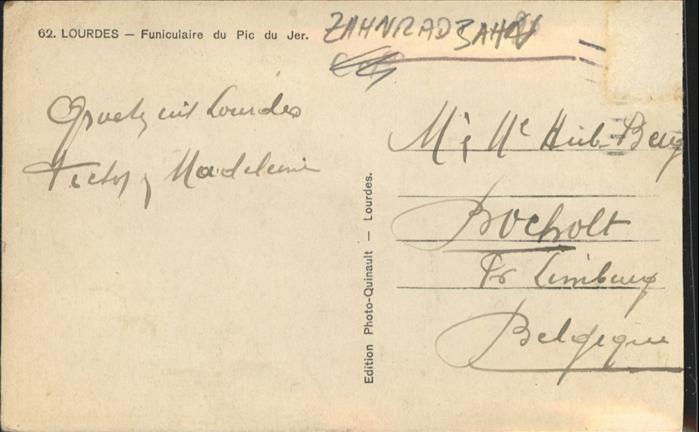 62. LOURDES — Funiculaire du Pic du Jer.
ZAHNRADBAHN
Groetz uit Lourdes
Madeleine
Edition Photo-Quinault — Lourdes.
Mr & Me Huib-
Bocholt
Pr Limburg
Belgique